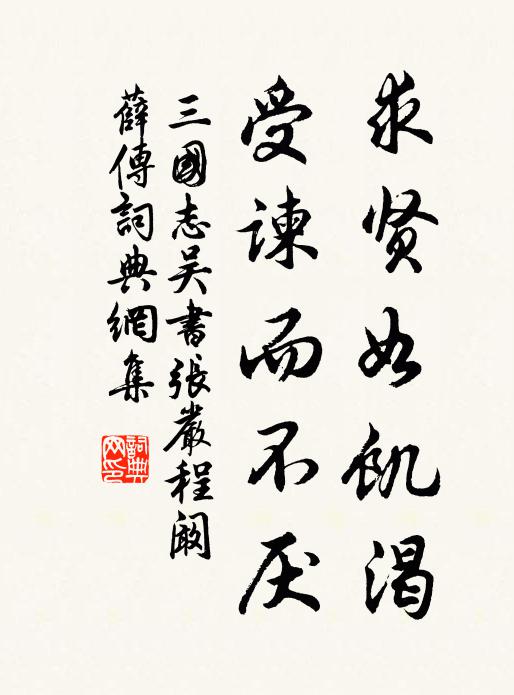 求贤如飢渴
受谏而不厌
三國志吴書張嚴程闞
薛傳詞典網集
詞典网印